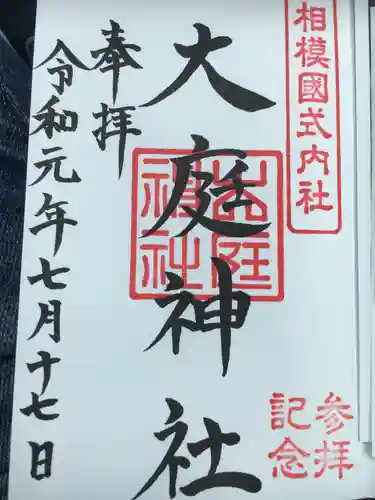 相模國式内社
大庭神社
奉拝
令和元年七月十七日
参拝
記念